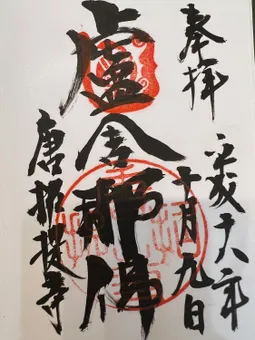 奉拝
平成十六年
十月九日
盧舎那佛
唐招提寺